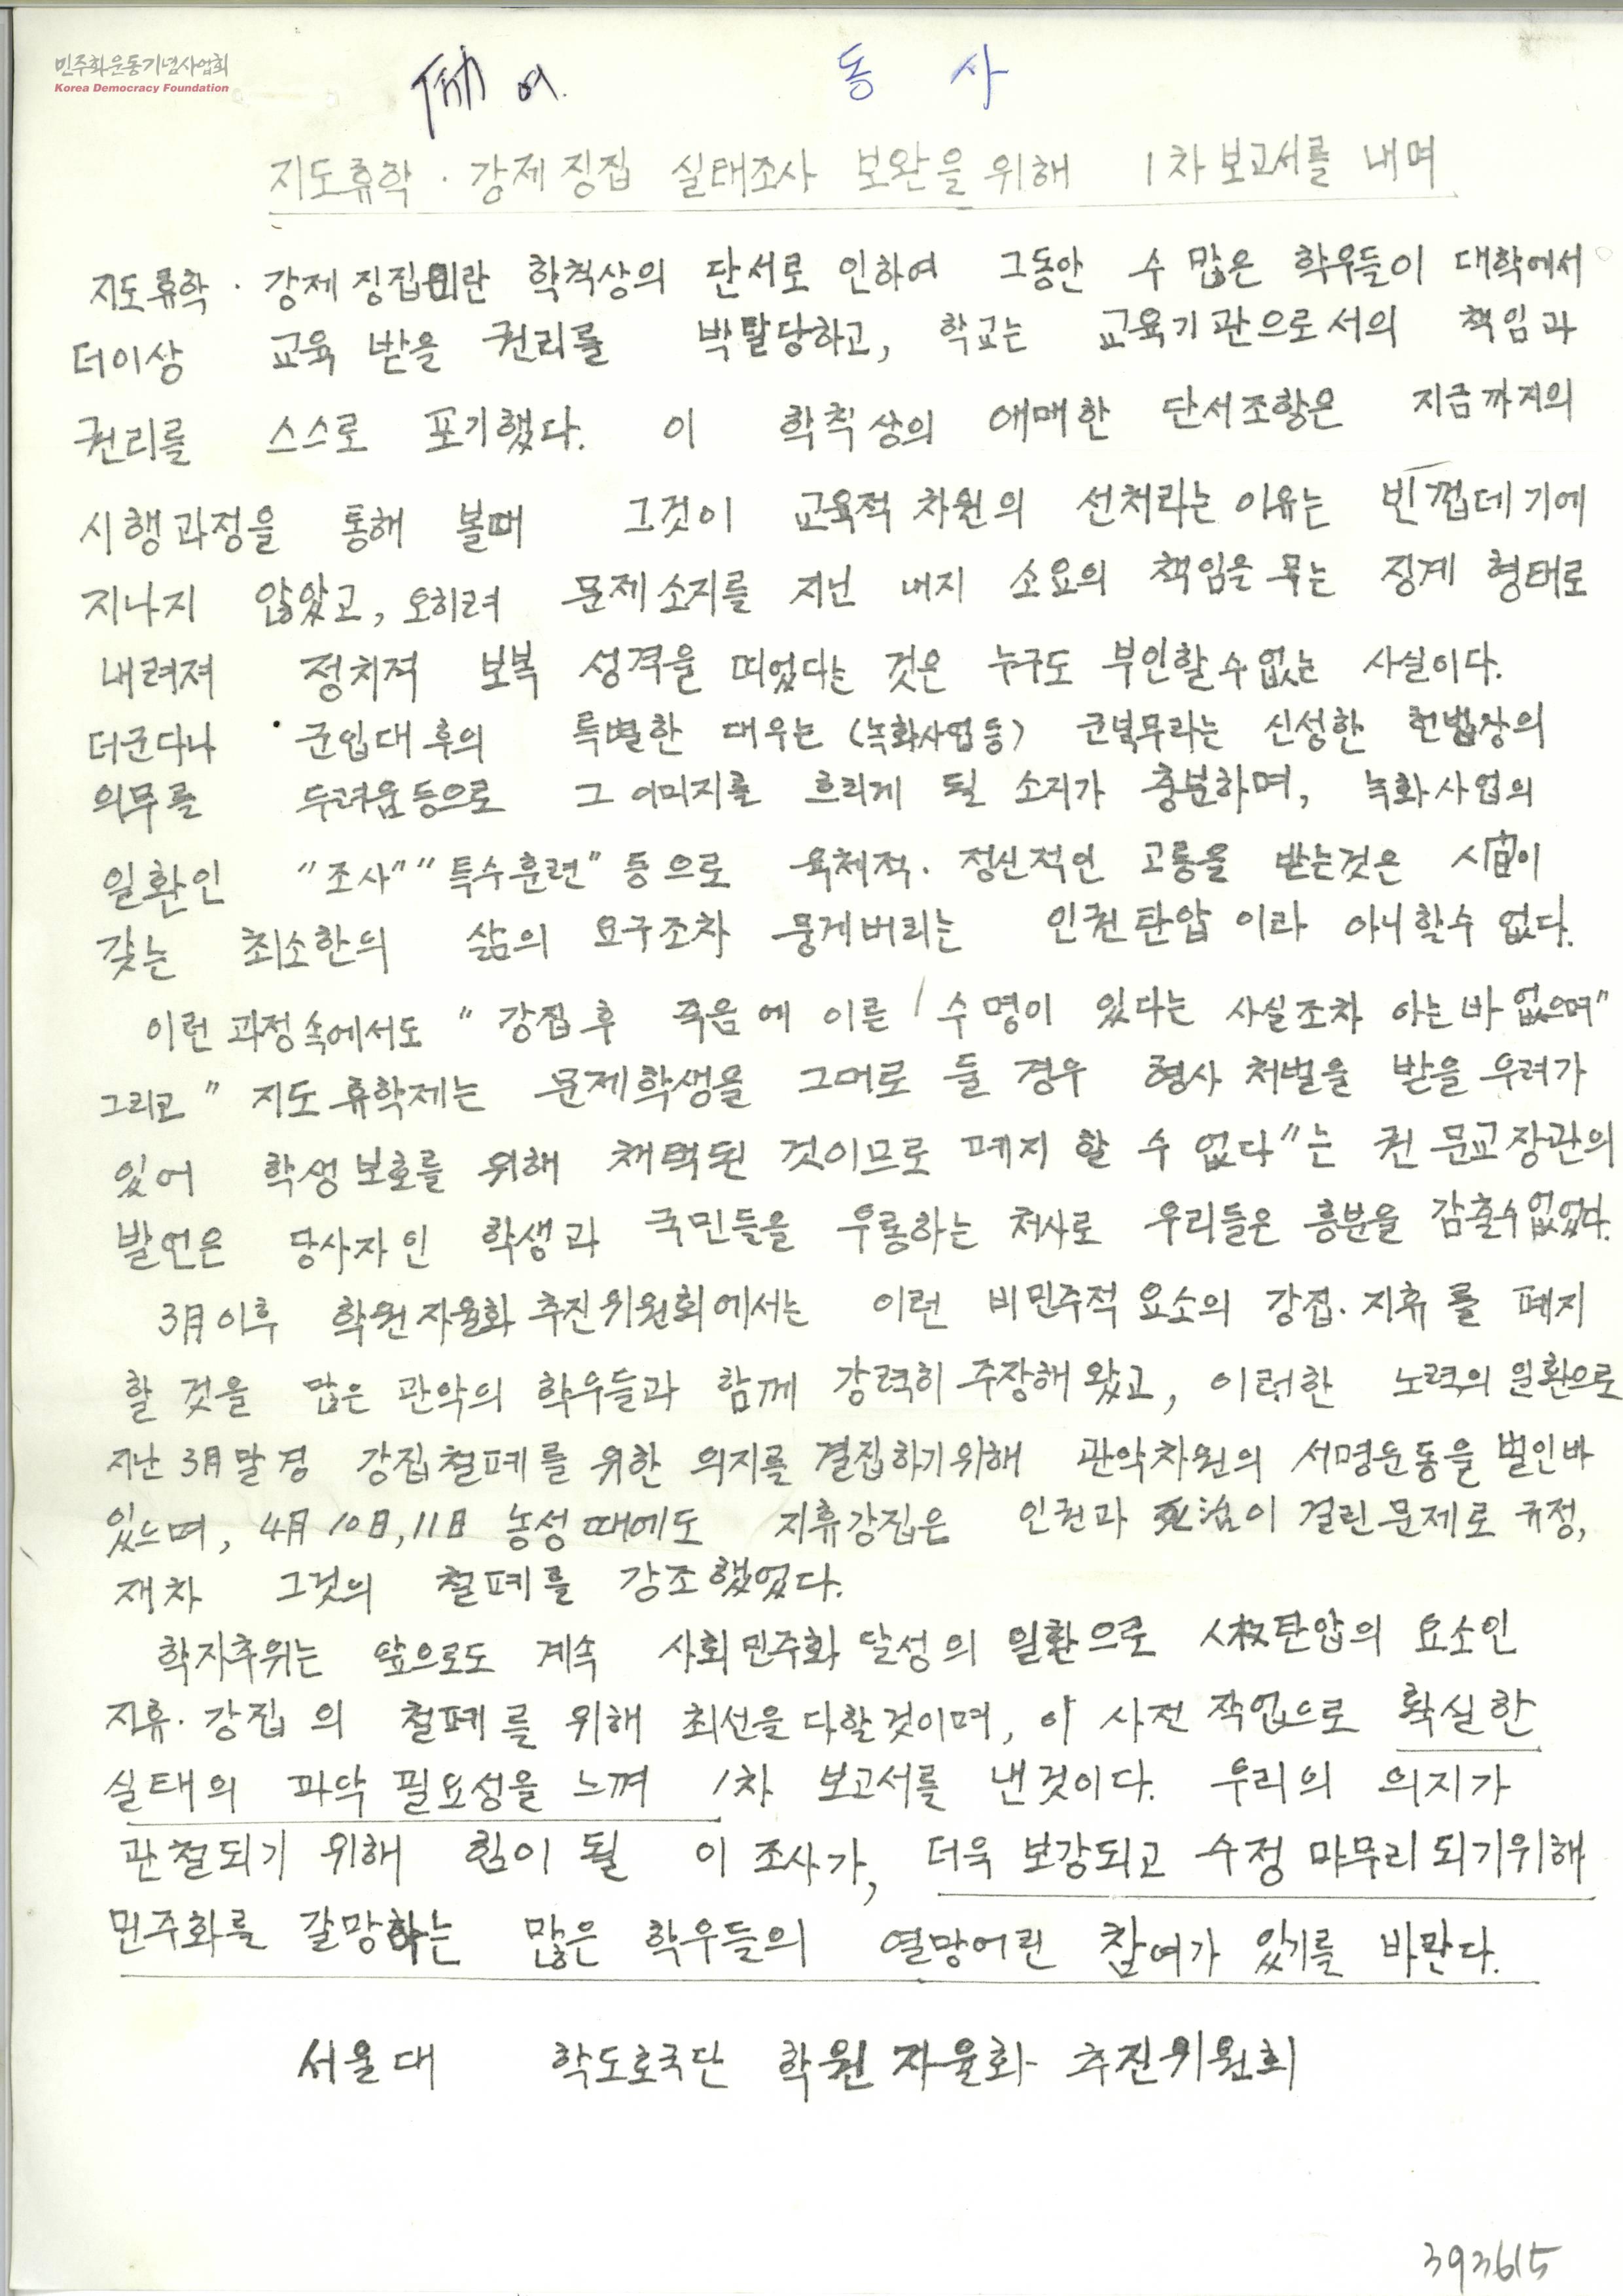 민주화운동기념사업회
Korea Democracy Foundation
동 사
지도휴학 · 강제징집 실태조사 보완을 위해 1차보고서를 내며
지도휴학 · 강제징집이란 학칙상의 단서로 인하여 그동안 수 많은 학우들이 대학에서
더이상 교육 받을 권리를 박탈당하고, 학교는 교육기관으로서의 책임과
권리를 스스로 포기했다. 이 학칙상의 애매한 단서조항은 지금까지의
시행과정을 통해 볼때 그것이 교육적 차원의 선처라는 이유는 빈껍데기에
지나지 않았고, 오히려 문제소지를 지닌 내지 소요의 책임을 묵는 징계 형태로
내려져 정치적 보복 성격을 띠었다는 것은 누구도 부인할수없는 사실이다.
더군다나 군입대후의 특별한 대우는 (녹화사업등) 군복무라는 신성한 헌법상의
의무를 두려움등으로 그 이미지를 흐리게 될 소지가 충분하며, 녹화사업의
일환인 "조사" "특수훈련" 등으로 육체적· 정신적인 고통을 받는것은 人間이
갖는 최소한의 삶의 요구조차 뭉게버리는 인권탄압 이라 아니할수 없다.
이런과정속에서도 "강집후 죽음에 이른 수명이 있다는 사실조차 아는바 없으며"
그리고 "지도휴학제는 문제학생을 그머로 둘 경우 형사 처벌을 받을 우려가
있어 학생보호를 위해 채택된 것이므로 폐지 할 수 없다"는 권 문교장관의
발언은 당사자인 학생과 국민들을 우롱하는 처사로 우리들은 흥분을 감출수없었다.
3月이후 학원자율화추진위원회에서는 이런 비민주적 요소의 강집·지휴를 폐지
할 것을 많은 관악의 학우들과 함께 강력히 주장해왔고, 이러한 노력의 일환으로
지난 3月말경 강집철폐를 위한 의지를 결집하기위해 관악차원의 서명운동을 벌인바
있느며, 4月10日,11日 농성때에도 지휴강집은 인권과 死活이 걸린문제로 규정,
재차 그것의 철폐를 강조했었다.
학자추위는 앞으로도 계속 사회민주화 달성의 일환으로 人权탄압의 요소인
지휴·강집의 철폐를 위해 최선을다할것이며, 이 사전작업으로 확실한
실태의 파악 필요성을 느껴 1차 보고서를 낸것이다. 우리의 의지가
관철되기 위해 힘이 될 이 조사가, 더욱 보강되고 수정 마무리되기위해
민주화를 갈망하는 많은 학우들의 열망어린 참여가 있기를 바란다.
서울대 학도호국단 학원자율화 추진위원회
393615